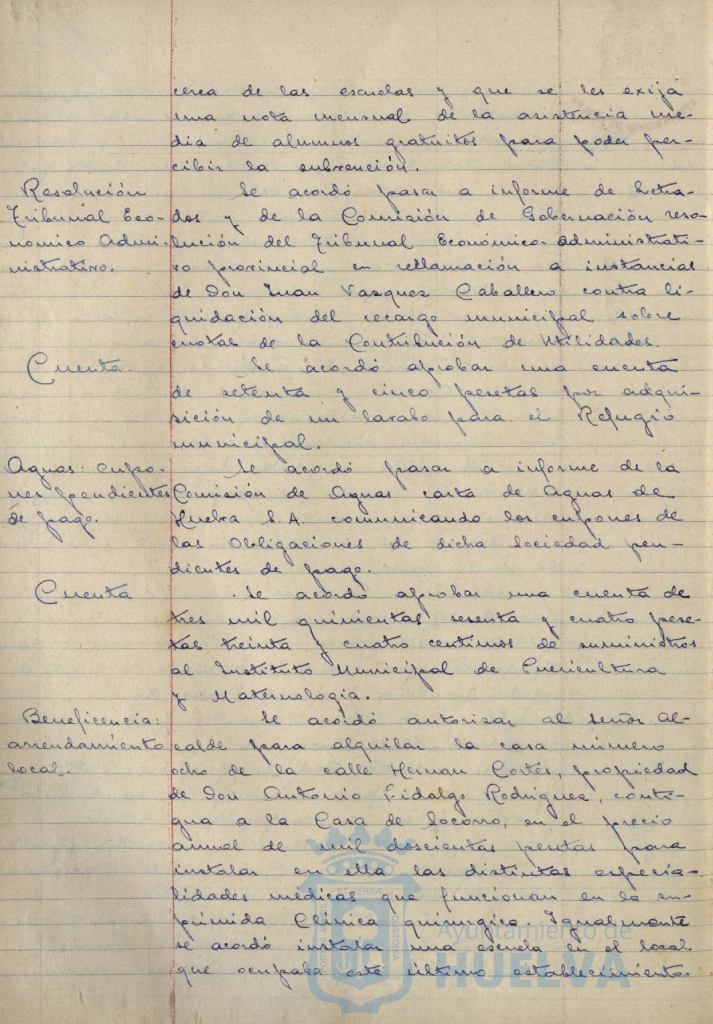 cerca de las escuelas y que se les exija
una nota mensual de la asistencia me-
dia de alumnos gratuitos para poder per-
cibir la subvención.
Resolución
Tribunal Eco-
nomico Admi-
nistrativo.
Se acordó pasar a informe de Letra-
dos y de la Comisión de Gobernación reso-
lución del Tribunal Económico-administrati-
vo provincial en reclamación a instancias
de Don Juan Vazquez Caballero contra li-
quidación del recargo municipal sobre
cuotas de la Contribución de Utilidades.
Cuenta.
Se acordó aprobar una cuenta
de setenta y cinco pesetas por adqui-
sición de un lavabo para el Refugio
municipal.
Aguas: cupo-
nes pendientes
de pago.
Se acordó pasar a informe de la
Comisión de Aguas carta de Aguas de
Huelva S.A. comunicando los cupones de
las Obligaciones de dicha Sociedad pen-
dientes de pago.
Cuenta
Se acordó aprobar una cuenta de
tres mil quinientas sesenta y cuatro pese-
tas treinta y cuatro centimos de suministros
al Instituto Municipal de Puericultura
y Maternologia.
Beneficencia:
arrendamiento
local.
Se acordó autorizar al señor Al-
calde para alquilar la casa número
ocho de la calle Hernan Cortés, propiedad
de Don Antonio Fidalgo Rodriguez, conti-
gua a la Casa de Socorro, en el precio
annual de mil doscientas pesetas para
instalar en ella las distintas especia-
lidades médicas que funcionan en la su-
primida Clínica quirurgica. Igualmente
se acordó instalar una escuela en el local
que ocupaba este último establecimiento.
Ayuntamiento de
HUELVA